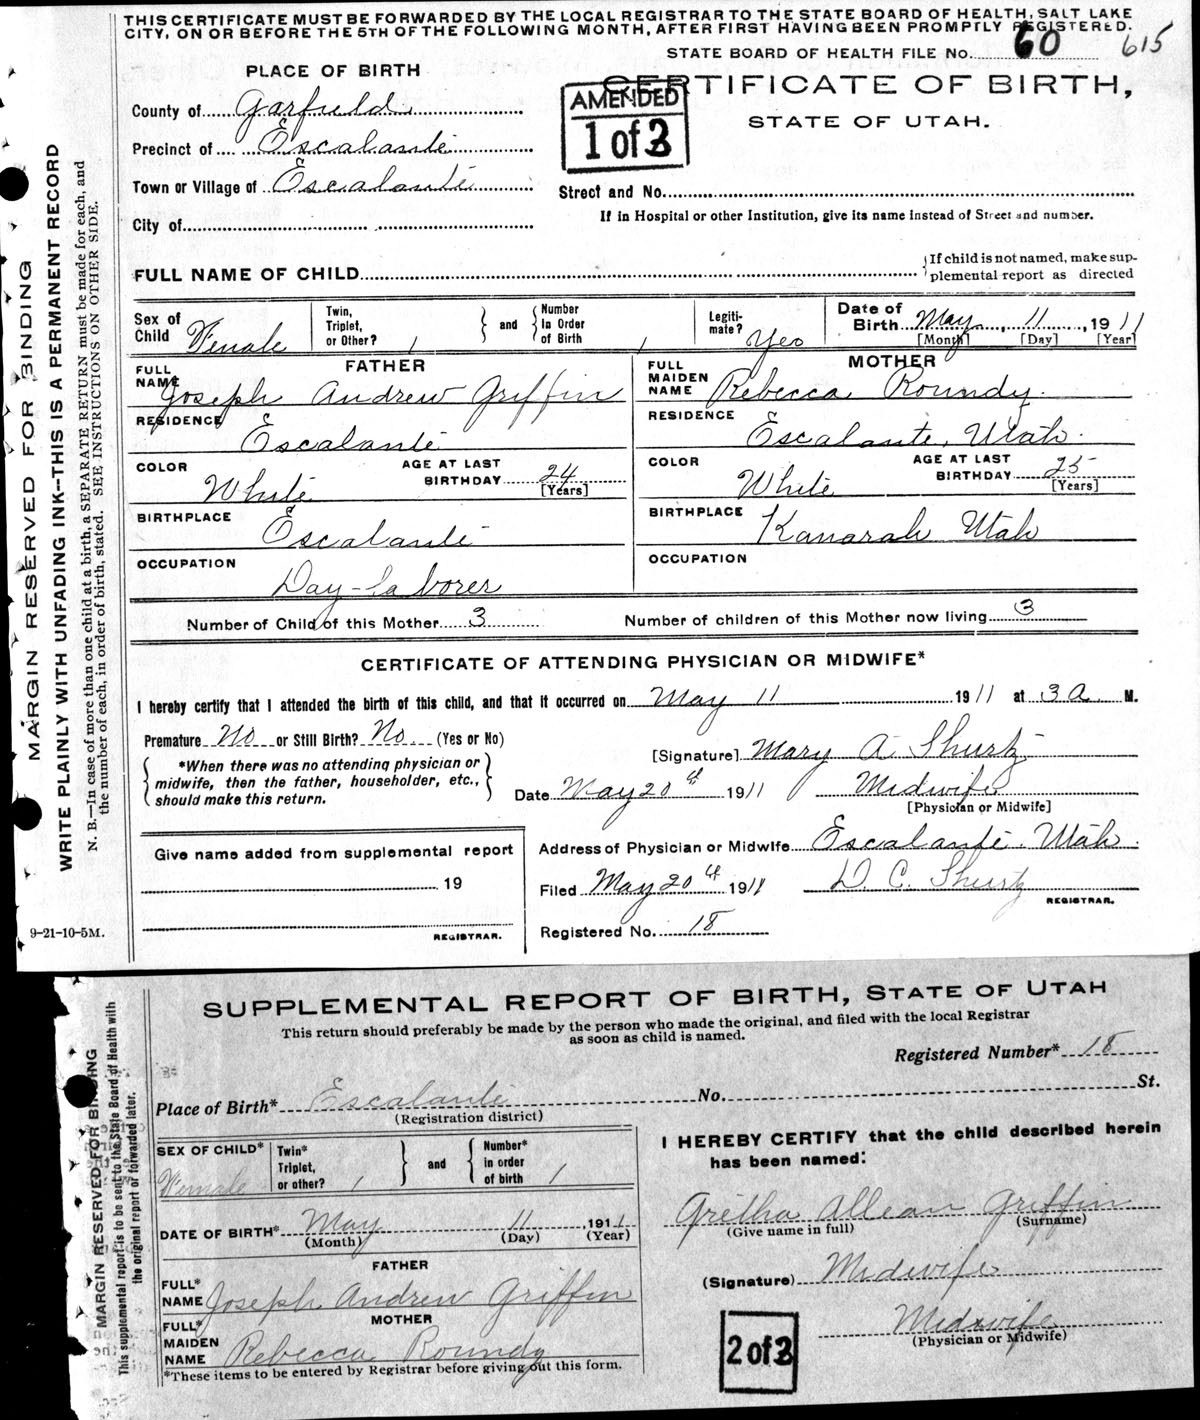 THIS CERTIFICATE MUST BE FORWARDED BY THE LOCAL REGISTRAR TO THE STATE BOARD OF HEALTH, SALT LAKE
CITY, ON OR BEFORE THE 5TH OF THE FOLLOWING MONTH, AFTER FIRST HAVING BEEN PROMPTLY REGISTERED.
STATE BOARD OF HEALTH FILE No. 60 615
PLACE OF BIRTH
CERTIFICATE OF BIRTH,
STATE OF UTAH.
AMENDED
1 of 3
County of Garfield
Precinct of Escalante
Town or Village of Escalante
City of
Street and No.
If in Hospital or other Institution, give its name instead of Street and number.
FULL NAME OF CHILD
If child is not named, make sup-
plemental report as directed
Sex of Child Female
Twin, Triplet, or Other? 1 and Number In Order of Birth 1
Legiti-mate? Yes
Date of Birth May, 11, 1911
[Month] [Day] [Year]
FATHER
FULL NAME Joseph Andrew Griffin
RESIDENCE Escalante
COLOR White
AGE AT LAST BIRTHDAY 24
[Years]
BIRTHPLACE Escalante
OCCUPATION Day-laborer
MOTHER
FULL MAIDEN NAME Rebecca Roundy
RESIDENCE Escalante, Utah.
COLOR White
AGE AT LAST BIRTHDAY 25
[Years]
BIRTHPLACE Kanarah Utah
OCCUPATION
Number of Child of this Mother 3
Number of children of this Mother now living 3
CERTIFICATE OF ATTENDING PHYSICIAN OR MIDWIFE*
I hereby certify that I attended the birth of this child, and that it occurred on May 11 1911 at 3 a. M.
Premature No or Still Birth? No (Yes or No)
*When there was no attending physician or
midwife, then the father, householder, etc.,
should make this return.
[Signature] Mary A Shurtz
Date May 20th 1911 Midwife
[Physician or Midwife]
Address of Physician or Midwife Escalante. Utah.
Filed May 20th 1911 D. C. Shurtz
REGISTRAR.
Registered No. 18
Give name added from supplemental report
19
REGISTRAR.
9-21-10-5M.
MARGIN RESERVED FOR BINDING
WRITE PLAINLY WITH UNFADING INK--THIS IS A PERMANENT RECORD
N. B.—In case of more than one child at a birth, a SEPARATE RETURN must be made for each, and
the number of each, in order of birth, stated. SEE INSTRUCTIONS ON OTHER SIDE.
SUPPLEMENTAL REPORT OF BIRTH, STATE OF UTAH
This return should preferably be made by the person who made the original, and filed with the local Registrar
as soon as child is named.
Registered Number* 18
Place of Birth* Escalante No. St.
(Registration district)
SEX OF CHILD* Female
Twin* Triplet, or other? 1 and Number* in order of birth 1
DATE OF BIRTH* May 11, 1911
(Month) (Day) (Year)
FATHER
FULL* NAME Joseph Andrew Griffin
MOTHER
FULL* MAIDEN NAME Rebecca Roundy
*These items to be entered by Registrar before giving out this form.
I HEREBY CERTIFY that the child described herein
has been named:
Gretha Allean Griffin
(Give name in full) (Surname)
(Signature) Midwife
Midwife
(Physician or Midwife)
2 of 3
MARGIN RESERVED FOR BINDING
This supplemental report is to be sent to the State Board of Health with
the original report or forwarded later.